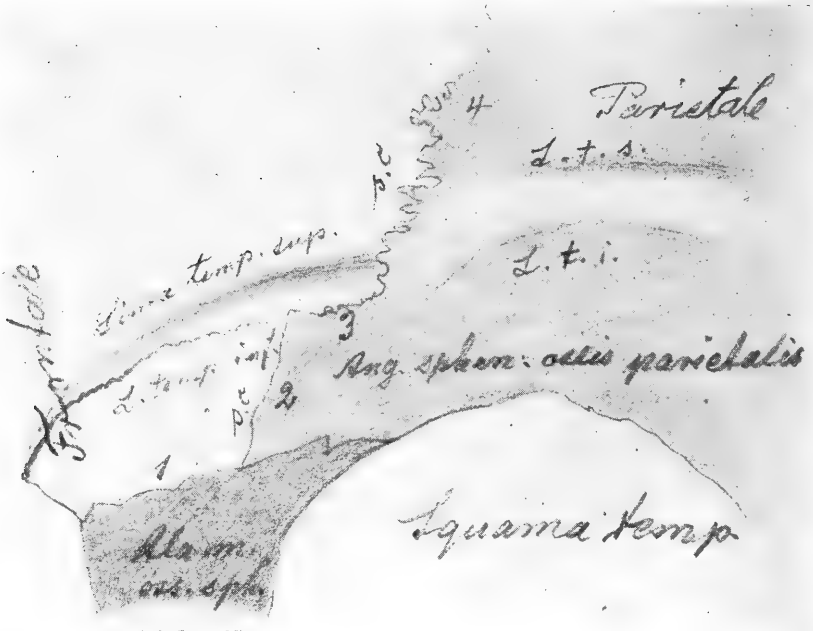 4
Parietale
L. t. s.
p. c
Linea temp. sup.
L. t. i.
3
L. temp. inf.
Ang. sphen. ossis parietalis
2
p. c
1
Squama temp.
Ala m.
oss. sph.